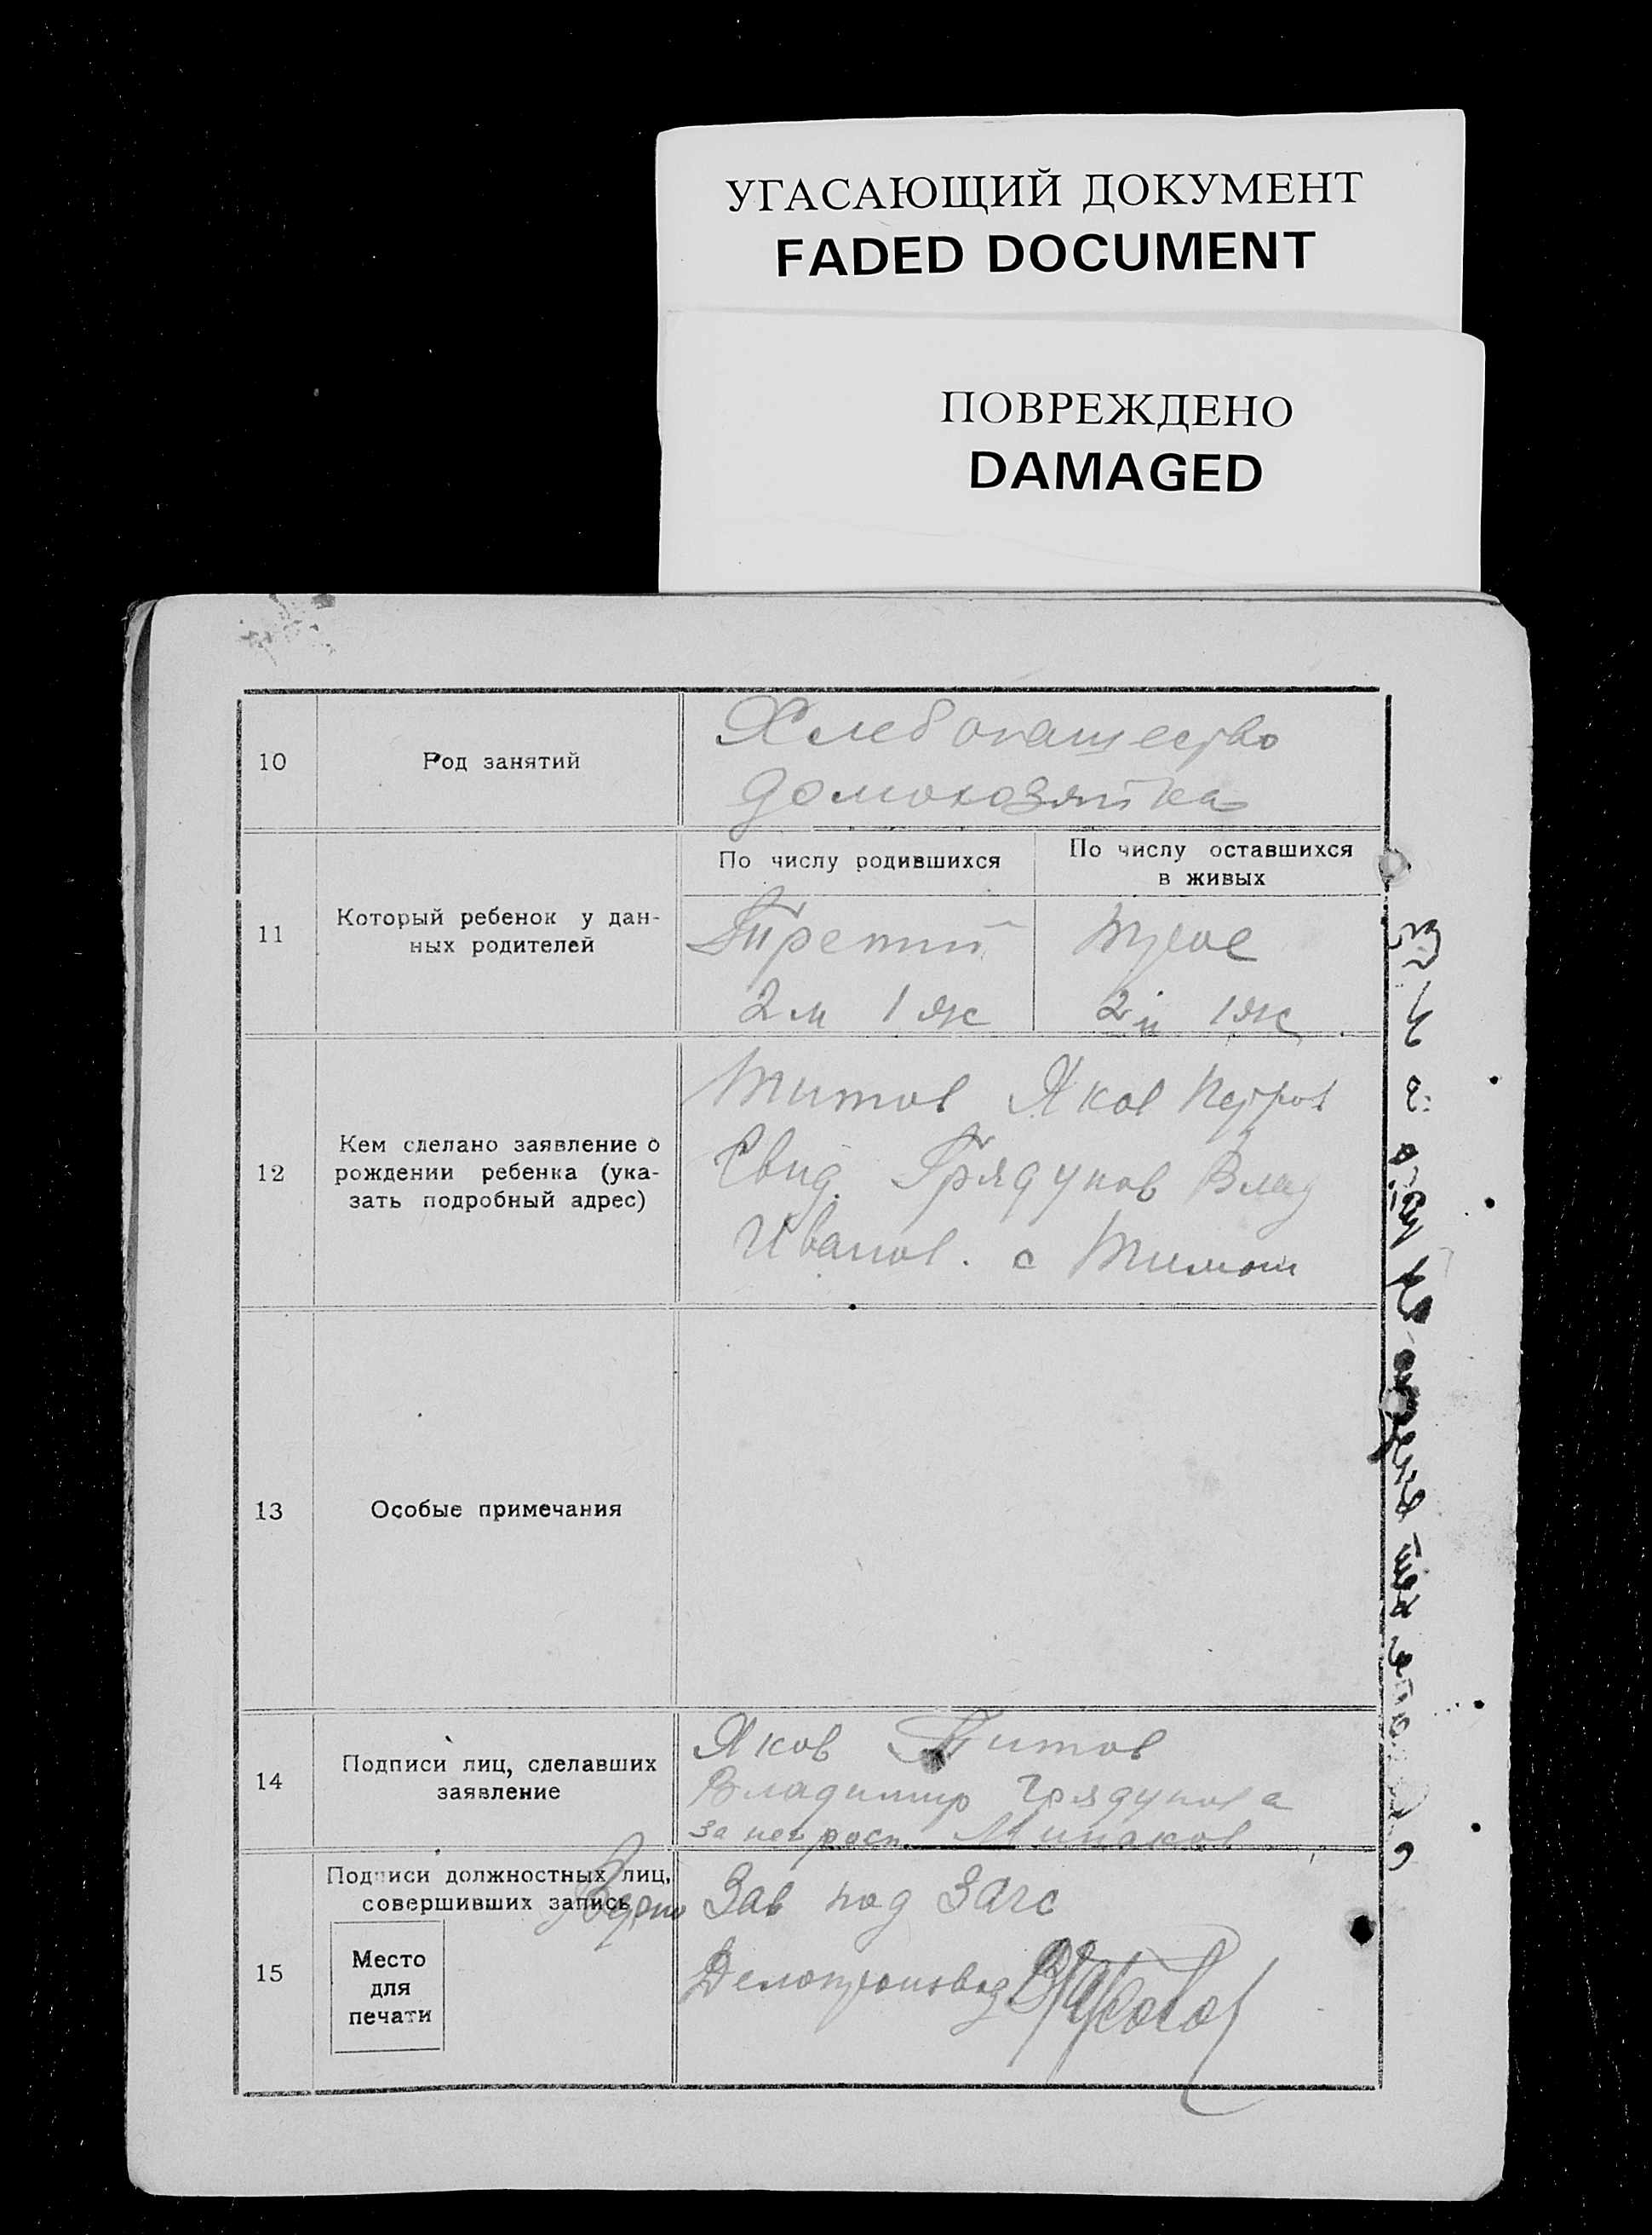 УГАСАЮЩИЙ ДОКУМЕНТ
FADED DOCUMENT
ПОВРЕЖДЕНО
DAMAGED
10
Род занятий
Хлебопашество
домохозяйка
11
Который ребенок у дан-
ных родителей
По числу родившихся
По числу оставшихся
в живых
Третий
Трое
2 м 1 ж
2 м 1 ж
12
Кем сделано заявление о
рождении ребенка (ука-
зать подробный адрес)
Титов Яков Петров
Свид. Грядунов Влад
Иванов. с
13
Особые примечания
14
Подписи лиц, сделавших
заявление
Яков Титов
Владимир Грядунова
за нег росп. Минаков
15
Подписи должностных лиц,
совершивших запись
Место
для
печати
Верно
Зав под Загс
Делопроизвод